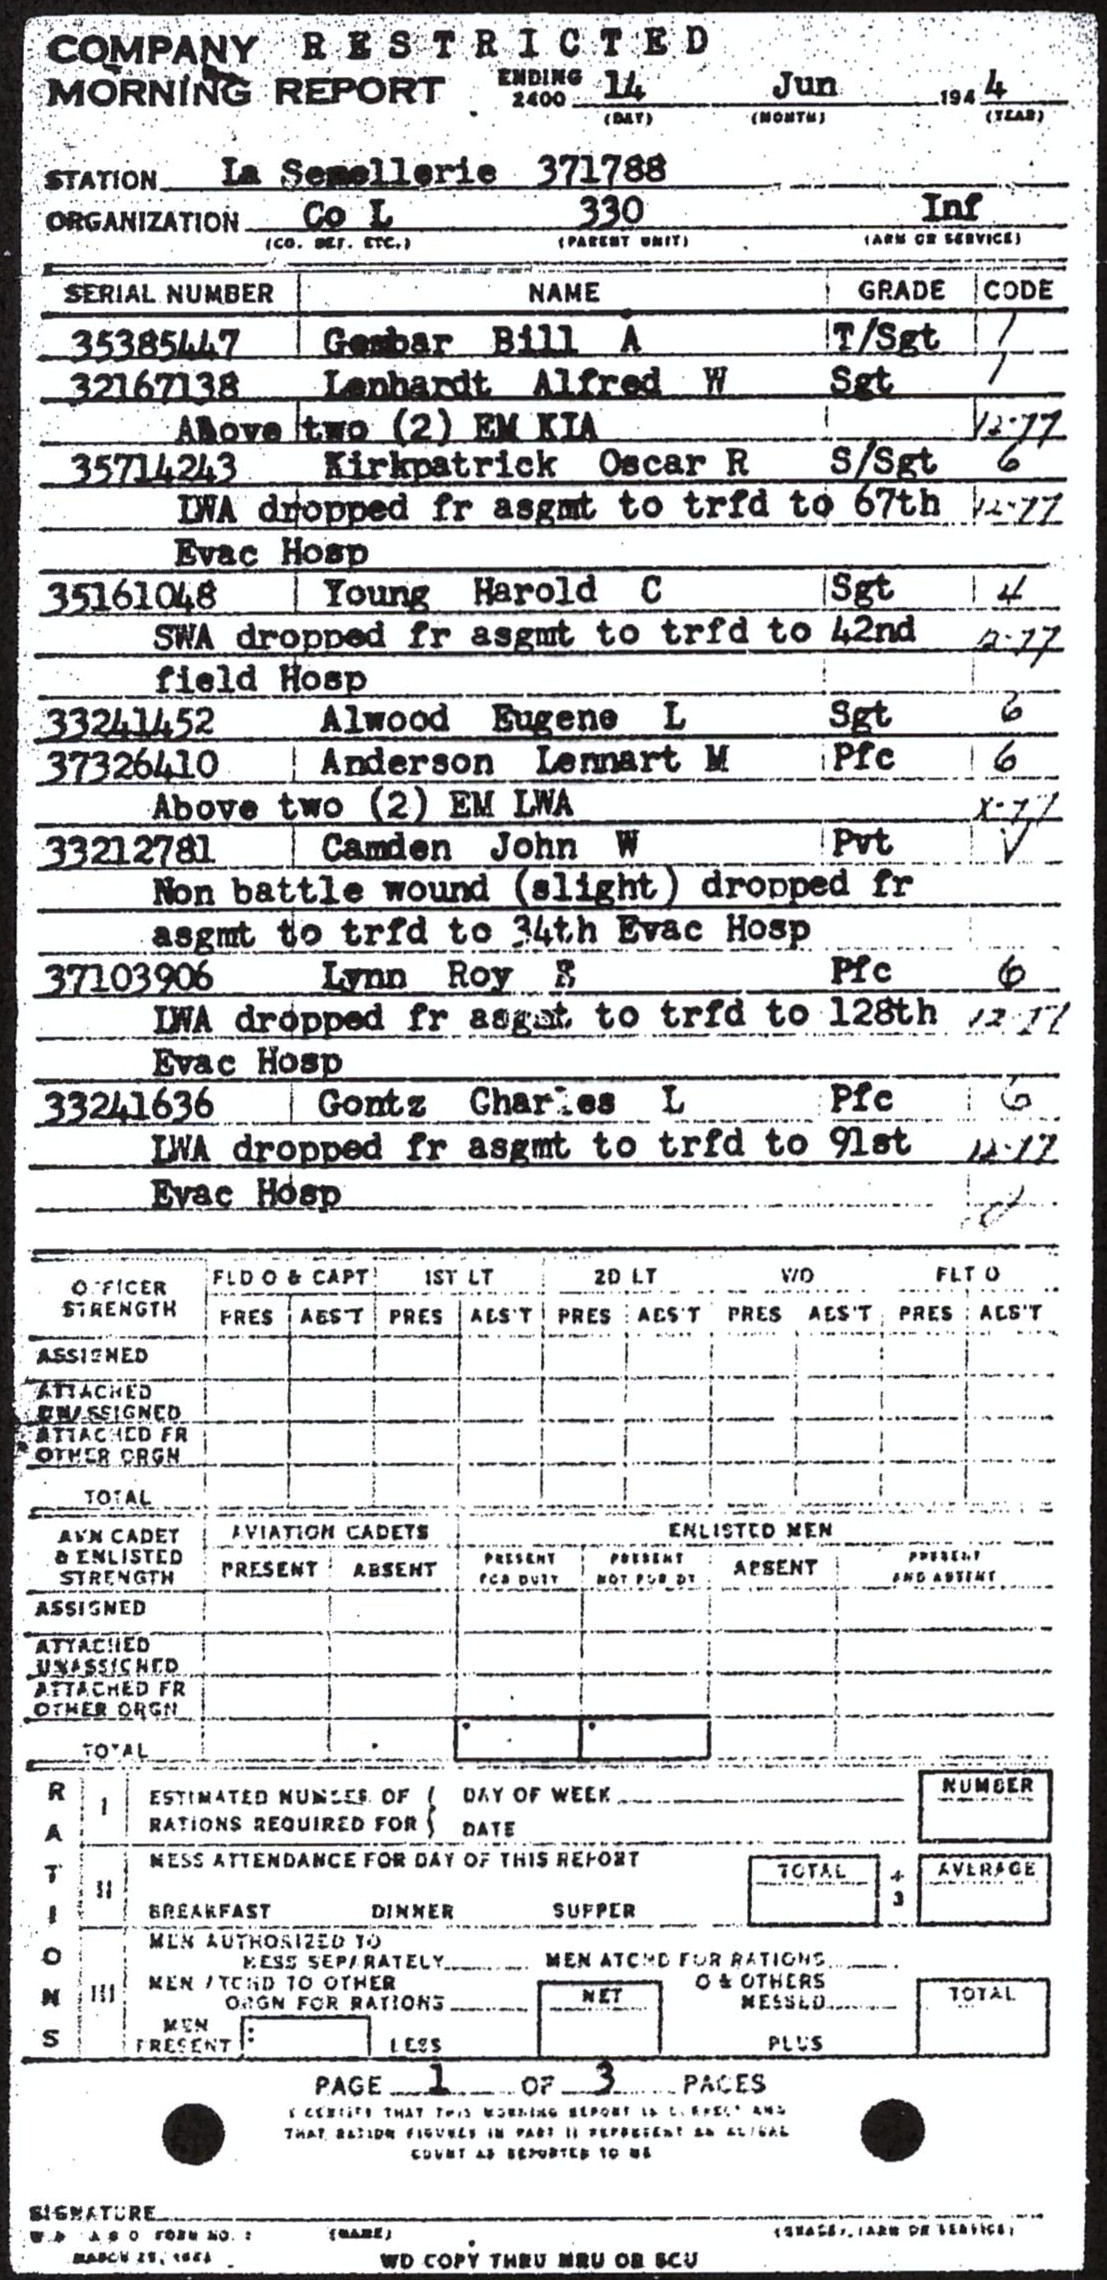 COMPANY RESTRICTED
MORNING REPORT ENDING 2400 14 Jun 1944
(DAY) (MONTH) (YEAR)
STATION La Semellerie 371788
ORGANIZATION Co L 330 Inf
(CO. DET. ETC.) (PARENT UNIT) (ARM OR SERVICE)
SERIAL NUMBER NAME GRADE CODE
35385447 Gembar Bill A T/Sgt 1
32167138 Lenhardt Alfred W Sgt 1
Above two (2) EM KIA 12-77
35714243 Kirkpatrick Oscar R S/Sgt 6
LWA dropped fr asgmt to trfd to 67th 12-77
Evac Hosp
35161048 Young Harold C Sgt 4
SWA dropped fr asgmt to trfd to 42nd 12-77
field Hosp
33241452 Alwood Eugene L Sgt 6
37326410 Anderson Lennart M Pfc 6
Above two (2) EM LWA X-77
33212781 Camden John W Pvt V
Non battle wound (slight) dropped fr
asgmt to trfd to 34th Evac Hosp
37103906 Lynn Roy E Pfc 6
LWA dropped fr asgmt to trfd to 128th 12-77
Evac Hosp
33241636 Gontz Charles L Pfc 6
LWA dropped fr asgmt to trfd to 91st 12-77
Evac Hosp
OFFICER STRENGTH FLD O & CAPT 1ST LT 2D LT W/O FLT O
PRES ABS'T PRES ABS'T PRES ABS'T PRES ABS'T PRES ABS'T
ASSIGNED
ATTACHED UNASSIGNED
ATTACHED FR OTHER ORGN
TOTAL
AVN CADET & ENLISTED STRENGTH AVIATION CADETS ENLISTED MEN
PRESENT ABSENT PRESENT FOR DUTY PRESENT NOT FOR DY ABSENT PRESENT AND ABSENT
ASSIGNED
ATTACHED UNASSIGNED
ATTACHED FR OTHER ORGN
TOTAL
RATIONS
I ESTIMATED NUMBER OF RATIONS REQUIRED FOR { DAY OF WEEK DATE NUMBER
II MESS ATTENDANCE FOR DAY OF THIS REPORT TOTAL ÷ 3 AVERAGE
BREAKFAST DINNER SUPPER
III MEN AUTHORIZED TO MESS SEPARATELY MEN ATCHD FOR RATIONS
MEN ATCHD TO OTHER ORGN FOR RATIONS NET O & OTHERS MESSED TOTAL
MEN PRESENT LESS PLUS
PAGE 1 OF 3 PAGES
I CERTIFY THAT THIS MORNING REPORT IS CORRECT AND
THAT RATION FIGURES IN PART II REPRESENT AN ACTUAL
COUNT AS REPORTED TO ME
SIGNATURE
W.D. A G O FORM NO. 1 (NAME) (GRADE), (ARM OR SERVICE)
MARCH
WD COPY THRU MRU OR SCU